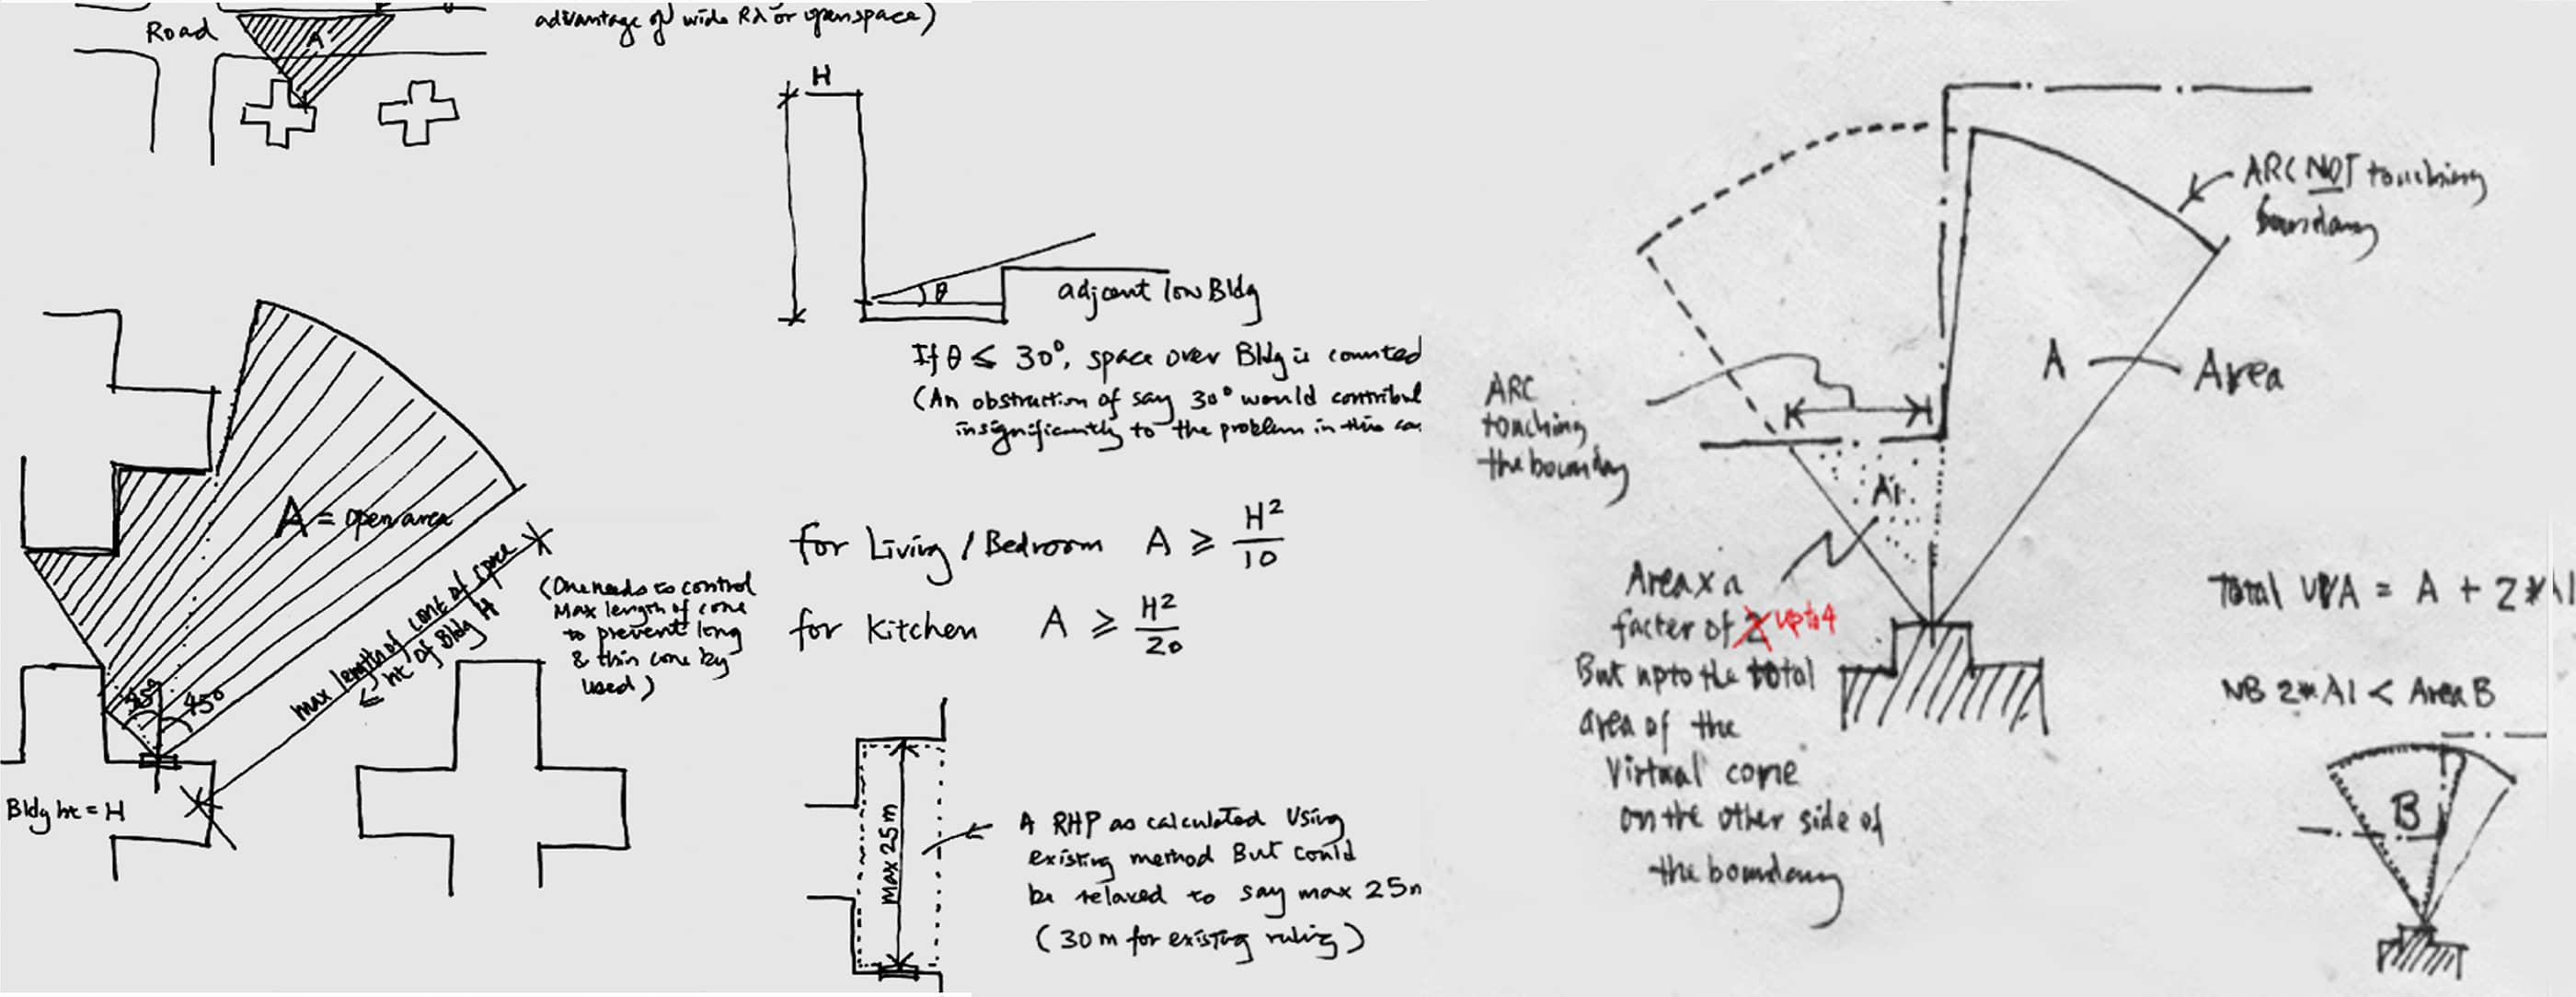 Road
A
advantage of wide Rd or open space)
H
θ
adjcent low Bldg
If θ ≤ 30°, space over Bldg is counted
(An obstruction of say 30° would
insignificantly to the problem in this
A = open area
max length of cone of space
≤ ht of Bldg H
45°
450
Bldg ht = H
(One needs to control
Max length of cone
to prevent long
& thin cone by
used)
for Living / Bedroom A ≥ H²/10
for Kitchen A ≥ H²/20
max 25m
A RHP as calculated Using
existing method But could
be relaxed to say max 25
(30m for existing ruling)
ARC NOT touching
boundary
A Area
ARC
touching
the boundary
A1
Area x a
factor of 2 up to 4
But upto the total
area of the
Virtual cone
on the other side of
the boundary
Total UVA = A + 2*A1
NB 2*A1 < Area B
B